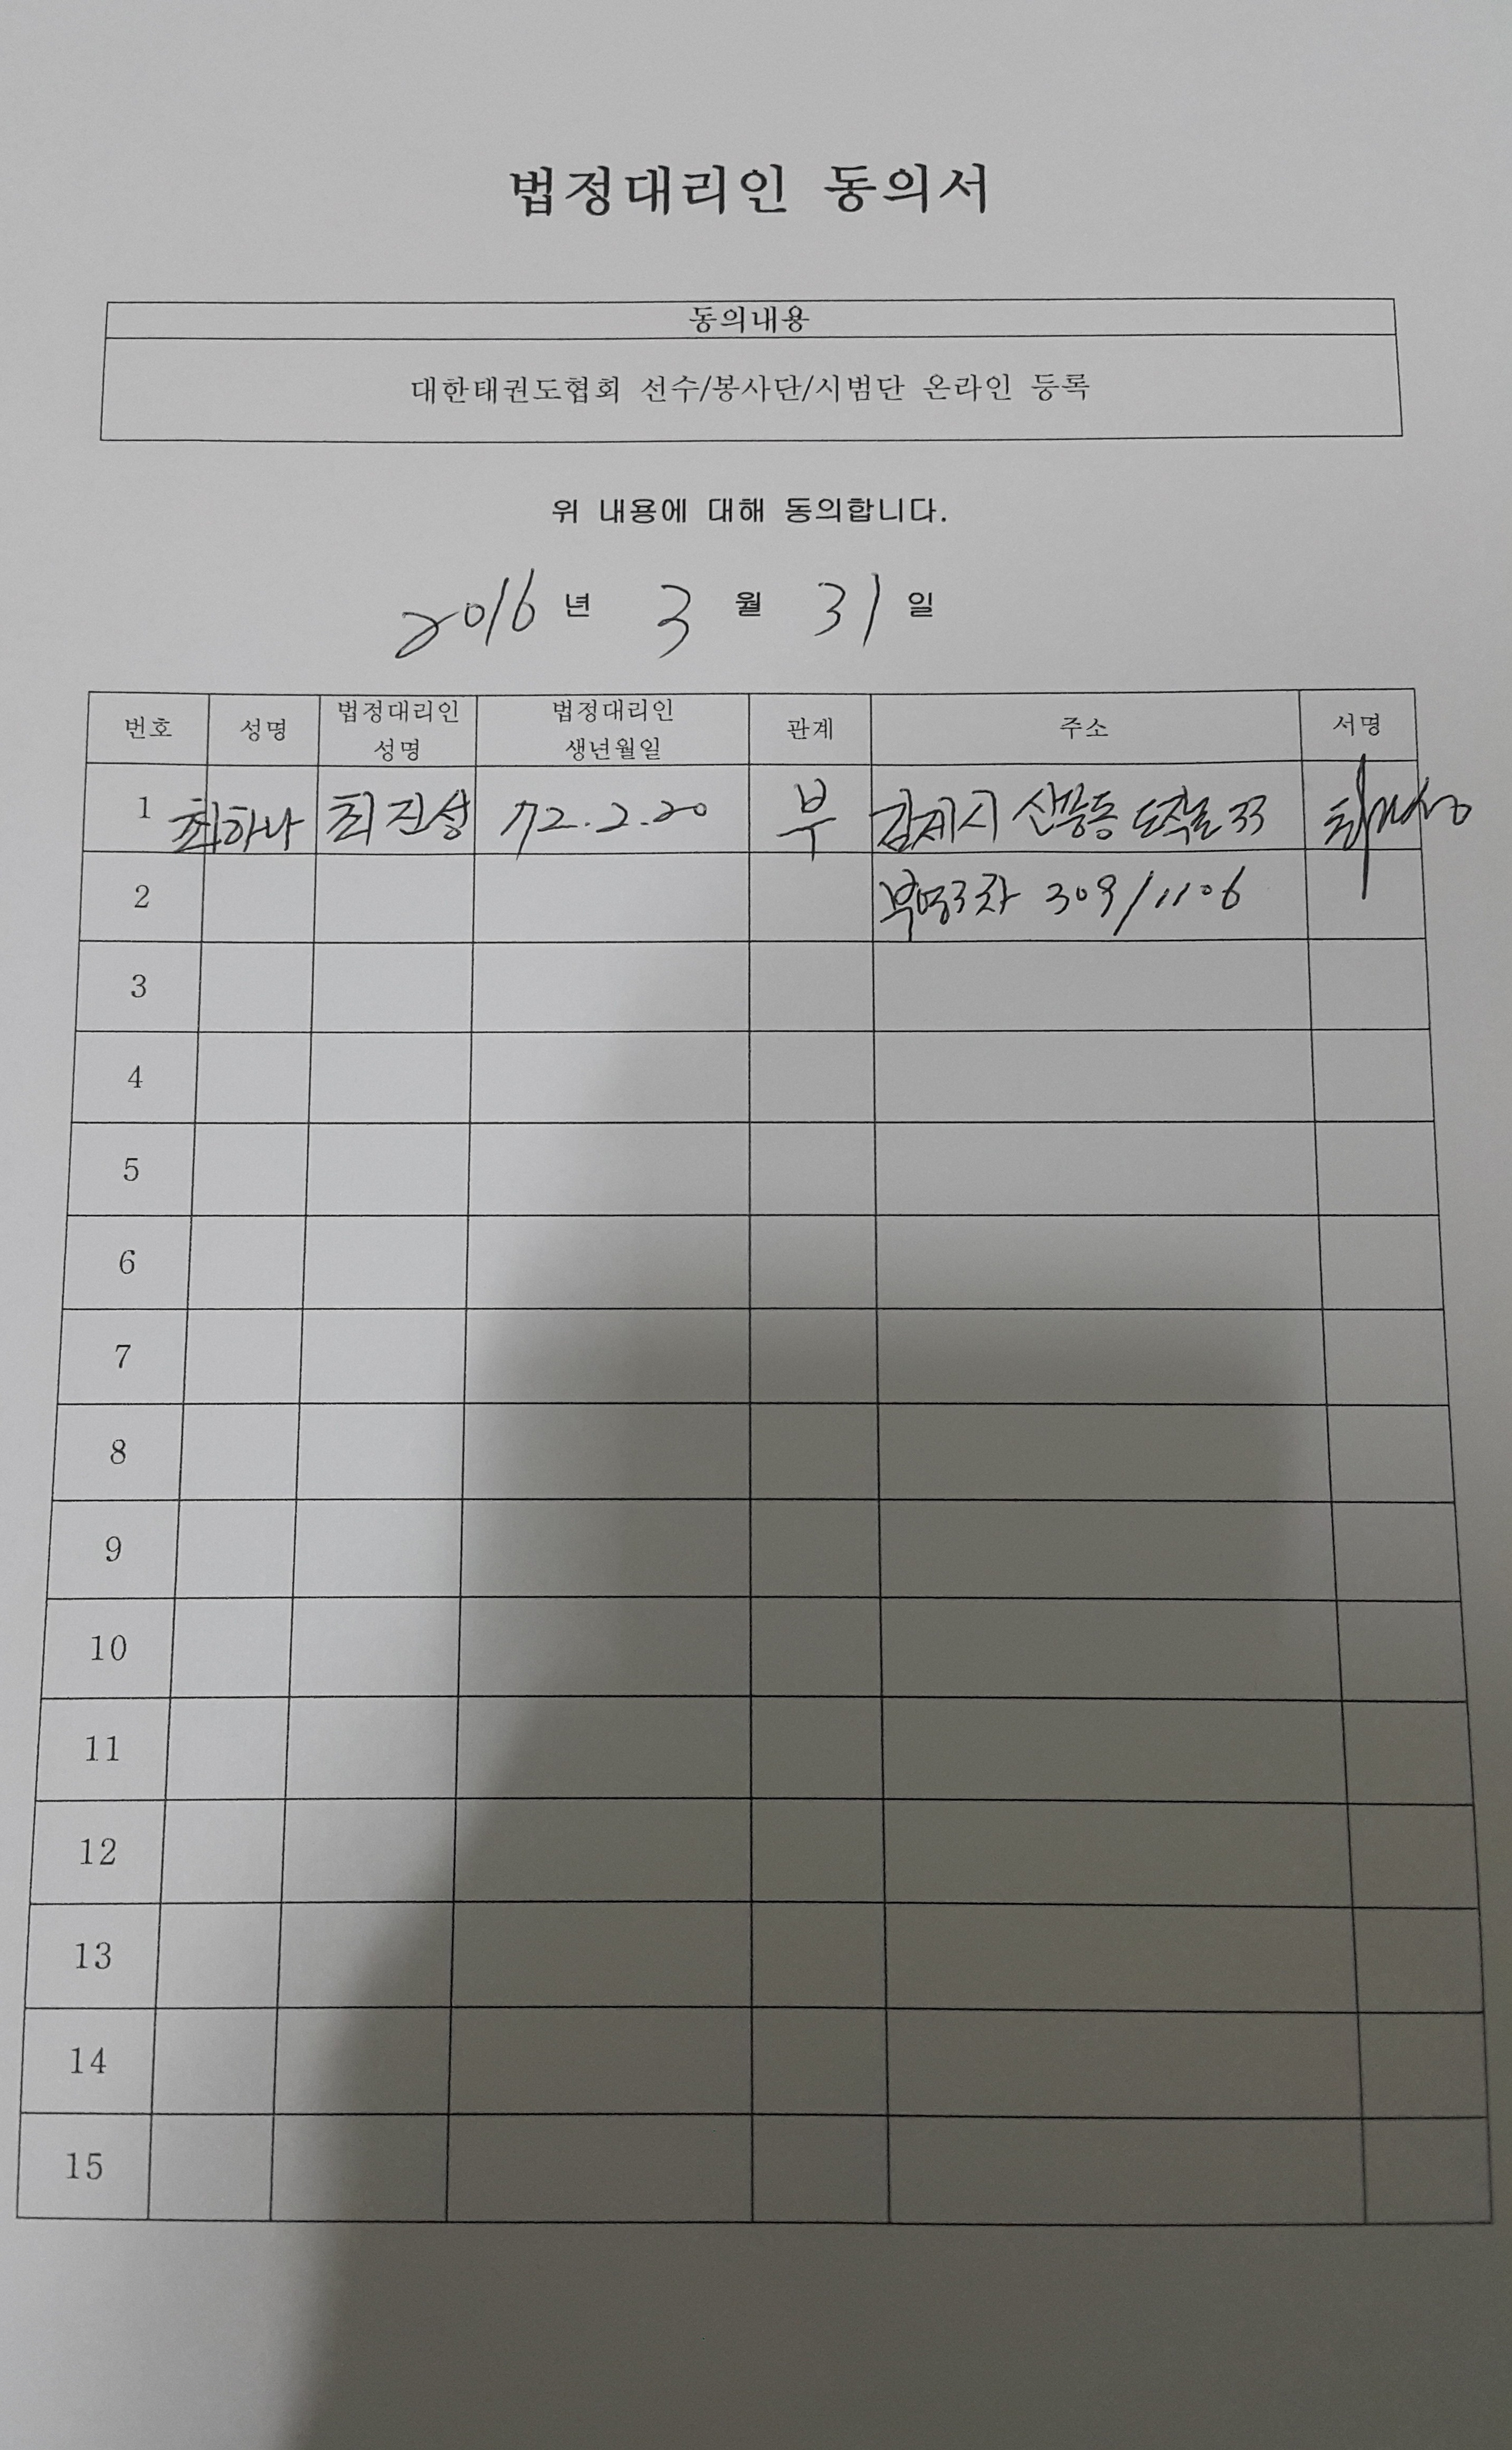 법정대리인 동의서
동의내용
대한태권도협회 선수/봉사단/시범단 온라인 등록
위 내용에 대해 동의합니다.
2016 년 3 월 31 일
번호 성명 법정대리인 성명 법정대리인 생년월일 관계 주소 서명
1 최하나 최진성 72.2.20 부 김제시 신풍동 도작로 33
2 부영3차 309/1106
3
4
5
6
7
8
9
10
11
12
13
14
15